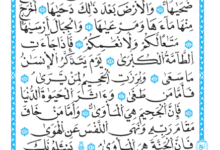 ضُحَىٰهَا ۝ وَٱلْأَرْضَ بَعْدَ ذَٰلِكَ دَحَىٰهَآ ۝ أَخْرَجَ
مِنْهَا مَآءَهَا وَمَرْعَىٰهَا ۝ وَٱلْجِبَالَ أَرْسَىٰهَا ۝
مَتَٰعًا لَّكُمْ وَلِأَنْعَٰمِكُمْ ۝ فَإِذَا جَآءَتِ
ٱلطَّآمَّةُ ٱلْكُبْرَىٰ ۝ يَوْمَ يَتَذَكَّرُ ٱلْإِنسَٰنُ
مَا سَعَىٰ ۝ وَبُرِّزَتِ ٱلْجَحِيمُ لِمَن يَرَىٰ ۝
فَأَمَّا مَن طَغَىٰ ۝ وَءَاثَرَ ٱلْحَيَوٰةَ ٱلدُّنْيَا
۝ فَإِنَّ ٱلْجَحِيمَ هِىَ ٱلْمَأْوَىٰ ۝ وَأَمَّا مَنْ خَافَ
مَقَامَ رَبِّهِۦ وَنَهَى ٱلنَّفْسَ عَنِ ٱلْهَوَىٰ ۝
فَإِنَّ ٱلْجَنَّةَ هِىَ ٱلْمَأْوَىٰ ۝